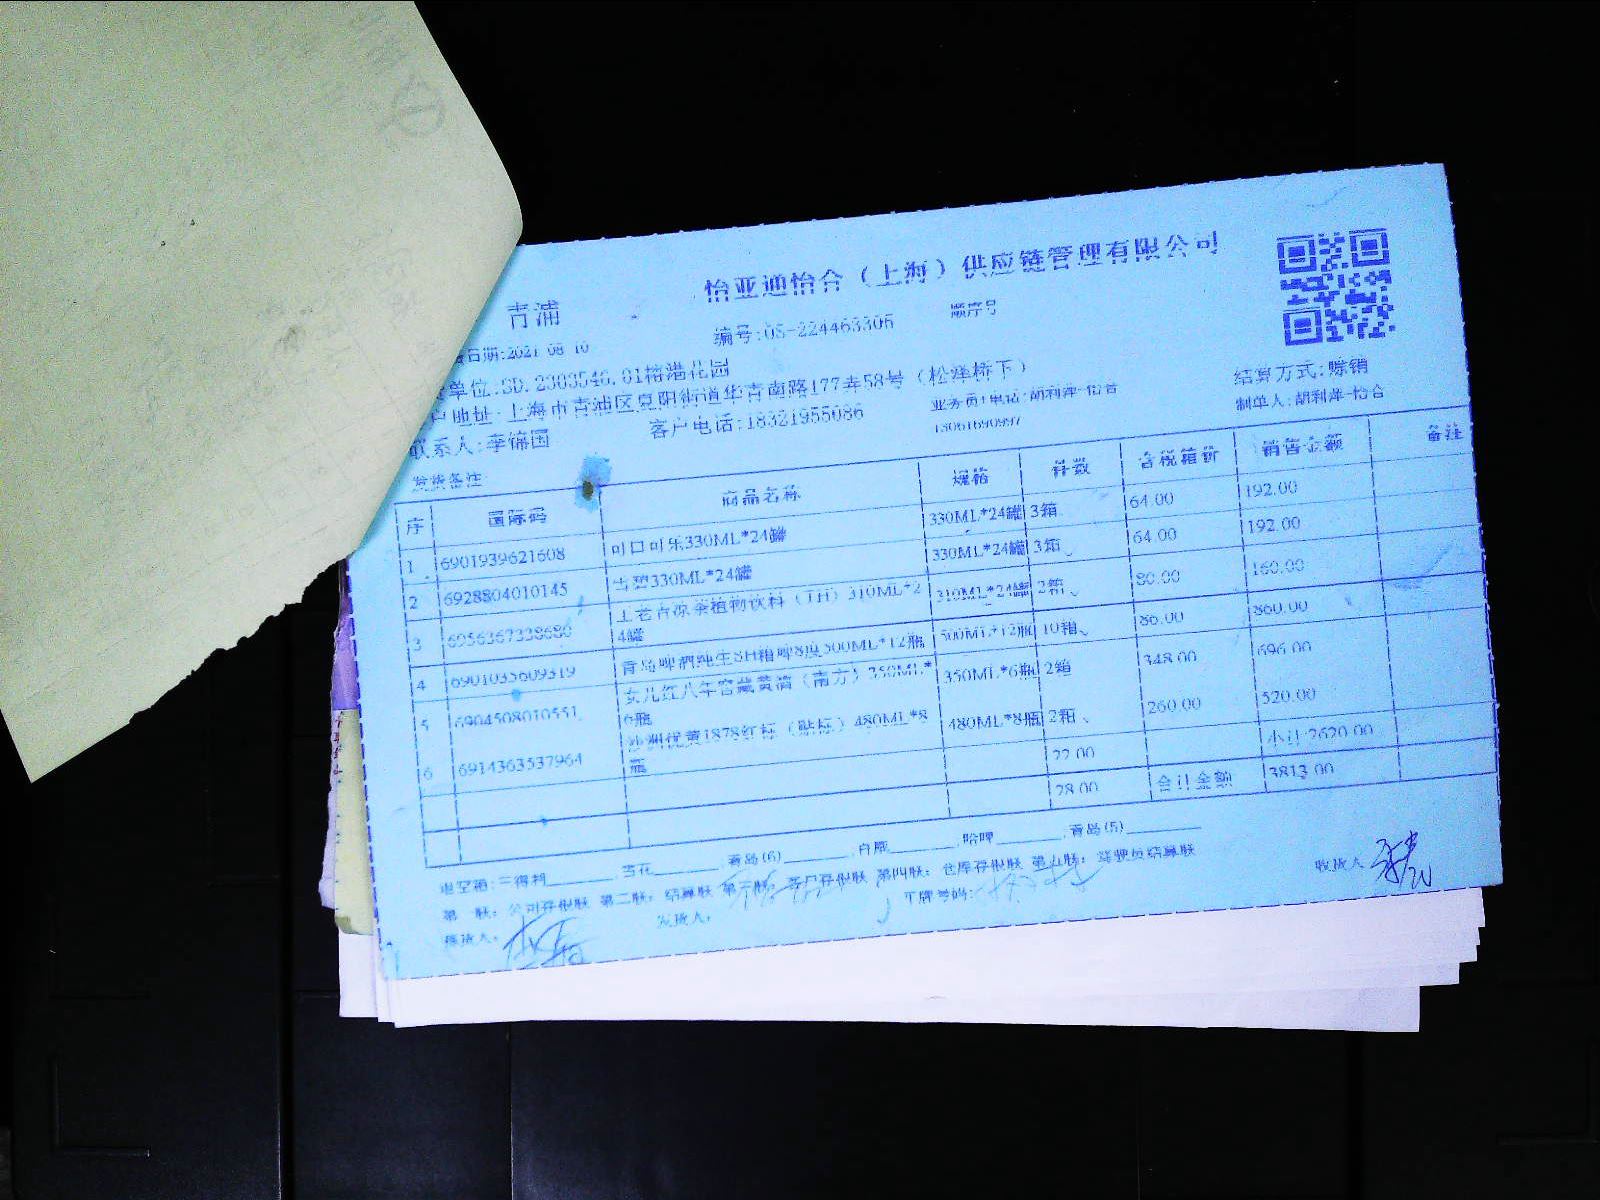 怡亚通怡合（上海）供应链管理有限公司
青浦
编号:0S-224463306
顺序号
日期:2021-08-10
单位:SD.2303546.01榕港花园
结算方式:赊销
户地址:上海市青浦区夏阳街道华青南路177弄58号（松泽桥下）
业务员:电话:胡利萍-怡合
制单人:胡利萍-怡合
联系人:李锦国
客户电话:18321955086
发货备注
序 国际码 商品名称 规格 件数 含税箱价 销售金额 备注
1 6901939621608 可口可乐330ML*24罐 330ML*24罐 3箱 64.00 192.00
2 6928804010145 雪碧330ML*24罐 330ML*24罐 3箱 64.00 192.00
3 6956367338680 王老吉凉茶植物饮料（TH）310ML*24罐 310ML*24罐 2箱 80.00 160.00
4 6901035609319 青岛啤酒纯生8H箱啤8度500ML*12瓶 500ML*12瓶 10箱 86.00 860.00
5 6904508010551 女儿红八年窖藏黄酒（南方）350ML*6瓶 350ML*6瓶 2箱 348.00 696.00
6 6914363537964 沙洲优黄1878红标（贴标）480ML*8瓶 480ML*8瓶 2箱 260.00 520.00
22.00 小计:2620.00
28.00 合计金额 3813.00
退空箱:三得利 雪花 青岛(6) 白瓶 哈啤 青岛(5)
第一联：公司存根联 第二联：结算联 第三联：客户存根联 第四联：仓库存根联 第五联：驾驶员结算联
提货人： 发货人： 车牌号码: 收货人